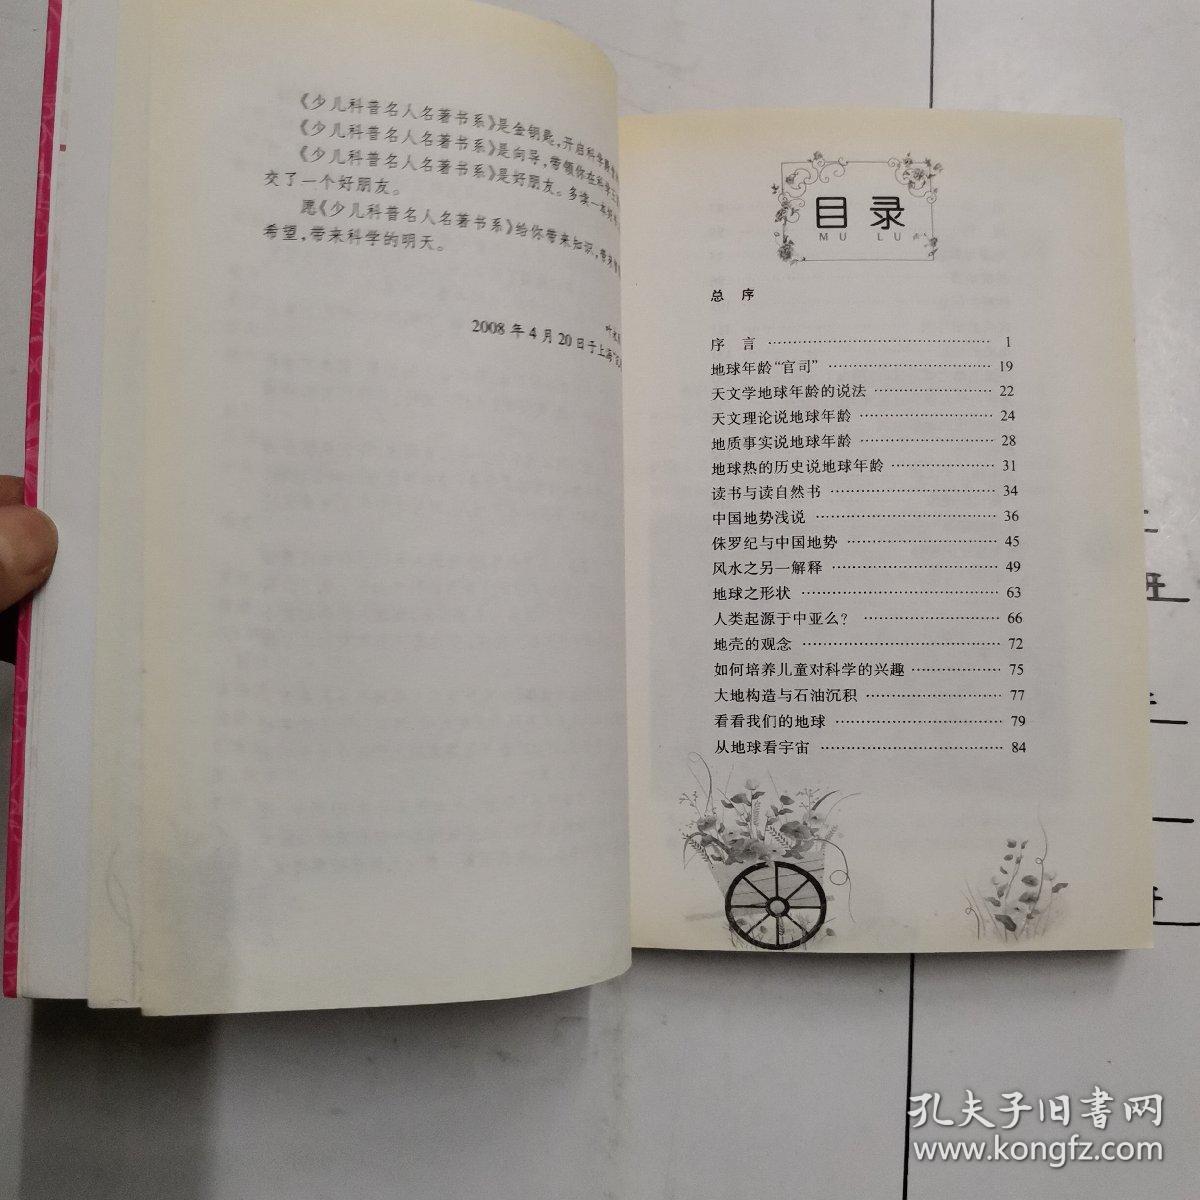 《少儿科普名人名著书系》是金钥匙,开启科学
《少儿科普名人名著书系》是向导,带领你在科学
《少儿科普名人名著书系》是好朋友。多读一本
交了一个好朋友。
愿《少儿科普名人名著书系》给你带来知识,带来
希望,带来科学的明天。
2008 年 4 月 20 日于上海
目录
MU LU
总 序
序 言 1
地球年龄“官司” 19
天文学地球年龄的说法 22
天文理论说地球年龄 24
地质事实说地球年龄 28
地球热的历史说地球年龄 31
读书与读自然书 34
中国地势浅说 36
侏罗纪与中国地势 45
风水之另一解释 49
地球之形状 63
人类起源于中亚么? 66
地壳的观念 72
如何培养儿童对科学的兴趣 75
大地构造与石油沉积 77
看看我们的地球 79
从地球看宇宙 84
孔夫子旧书网
www.kongfz.com